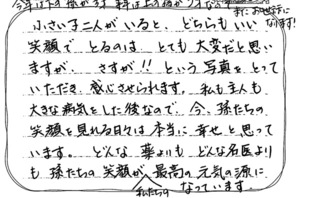 また お世話に
なります!
小さい子二人がいると、どちらもいい
笑顔でとるのは とても大変だと思い
ますが、さすが!!という写真をとって
いただき、感心させられます。私も主人も
大きな病気をした後なので、今、孫たちの
笑顔を見れる日々は本当に幸せと思って
います。どんな薬よりも どんな名医より
も 孫たちの笑顔が 最高の元気の源に
私たちの なっています。